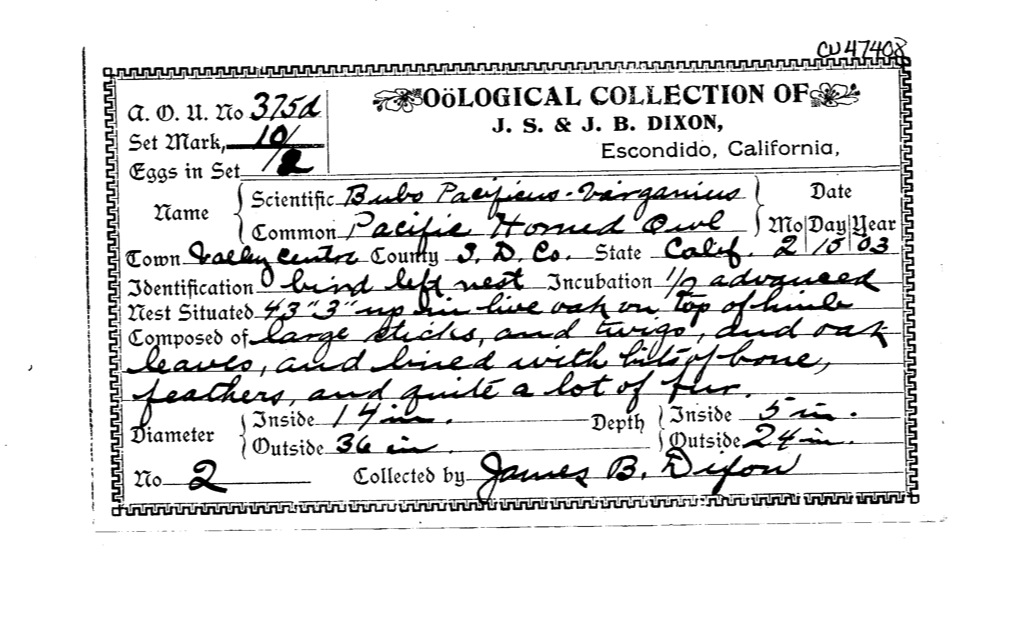 CU47408
A. O. U. No 375d
OöLOGICAL COLLECTION OF
Set Mark, 10/2
J. S. & J. B. DIXON,
Eggs in Set 2
Escondido, California,
Name Scientific Bubo Pacificus-Varganius Date
Common Pacific Horned Owl Mo Day Year
Town Valley Centre County S. D. Co. State Calif. 2 15 03
Identification bird left nest Incubation 1/2 advanced
Nest Situated 43" 3" up in live oak on top of limb
Composed of large sticks, and twigs, and oak
leaves, and lined with bits of bone,
feathers, and quite a lot of fur.
Diameter Inside 14 in. Depth Inside 5 in.
Outside 36 in. Outside 24 in.
No 2 Collected by James B. Dixon